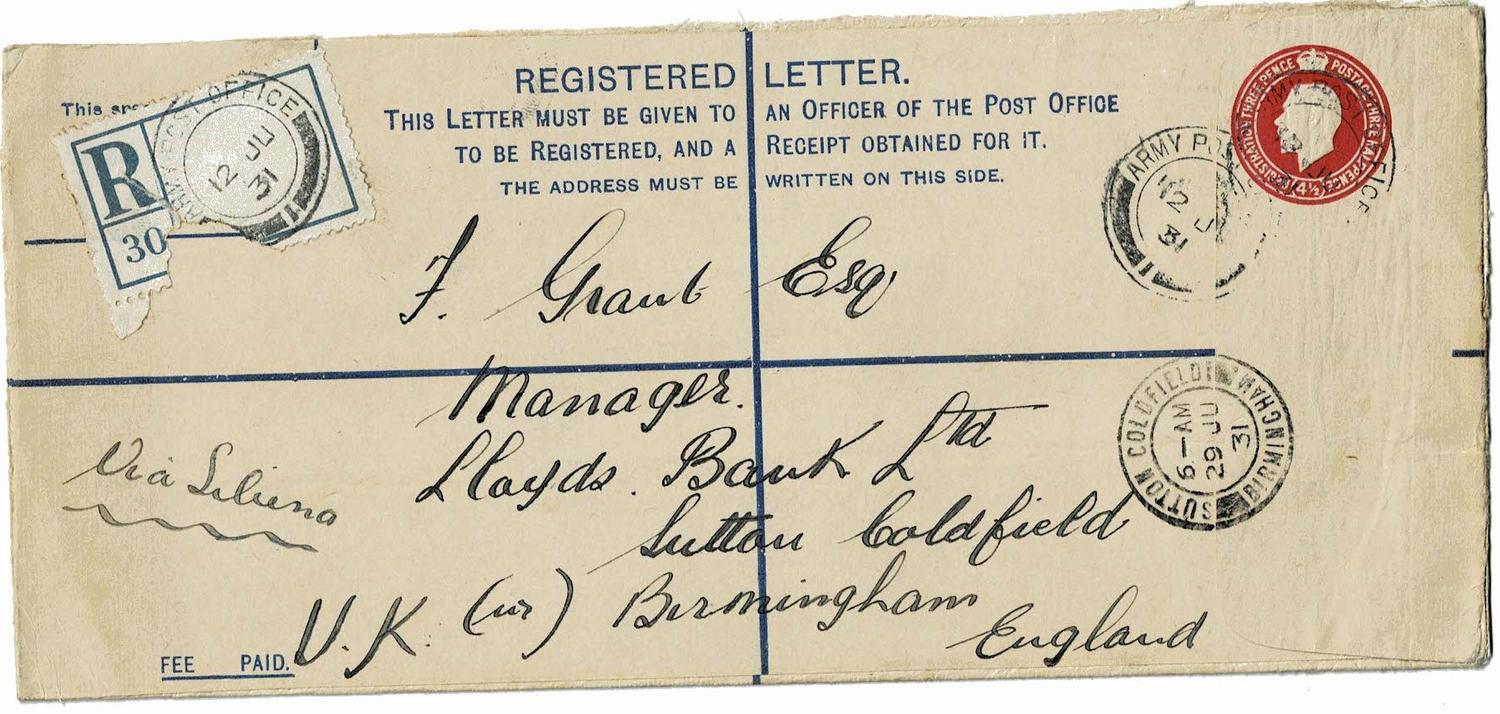 REGISTERED LETTER.
THIS LETTER MUST BE GIVEN TO AN OFFICER OF THE POST OFFICE
TO BE REGISTERED, AND A RECEIPT OBTAINED FOR IT.
THE ADDRESS MUST BE WRITTEN ON THIS SIDE.
This
R
30
POST OFFICE
12 JU
31
ARMY POS
12 JU
31
REGISTRATION THREE PENCE POSTAGE THREE HALFPENCE
4½
F. Grant Esq
Manager.
Lloyds. Bank Ltd
Sutton Coldfield
(nr) Birmingham
England
U.K.
Via
SUTTON COLDFIELD BIRMINGHAM
6-AM
29 JU
31
FEE PAID.